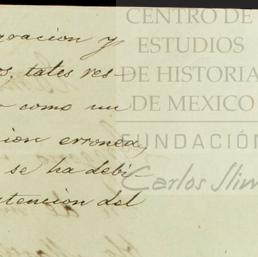 racion y
os, tales res-
o como un
cion erronea,
se ha debi-
atencion del
CENTRO DE
ESTUDIOS
DE HISTORIA
DE MEXICO
FUNDACIÓN
Carlos Slim